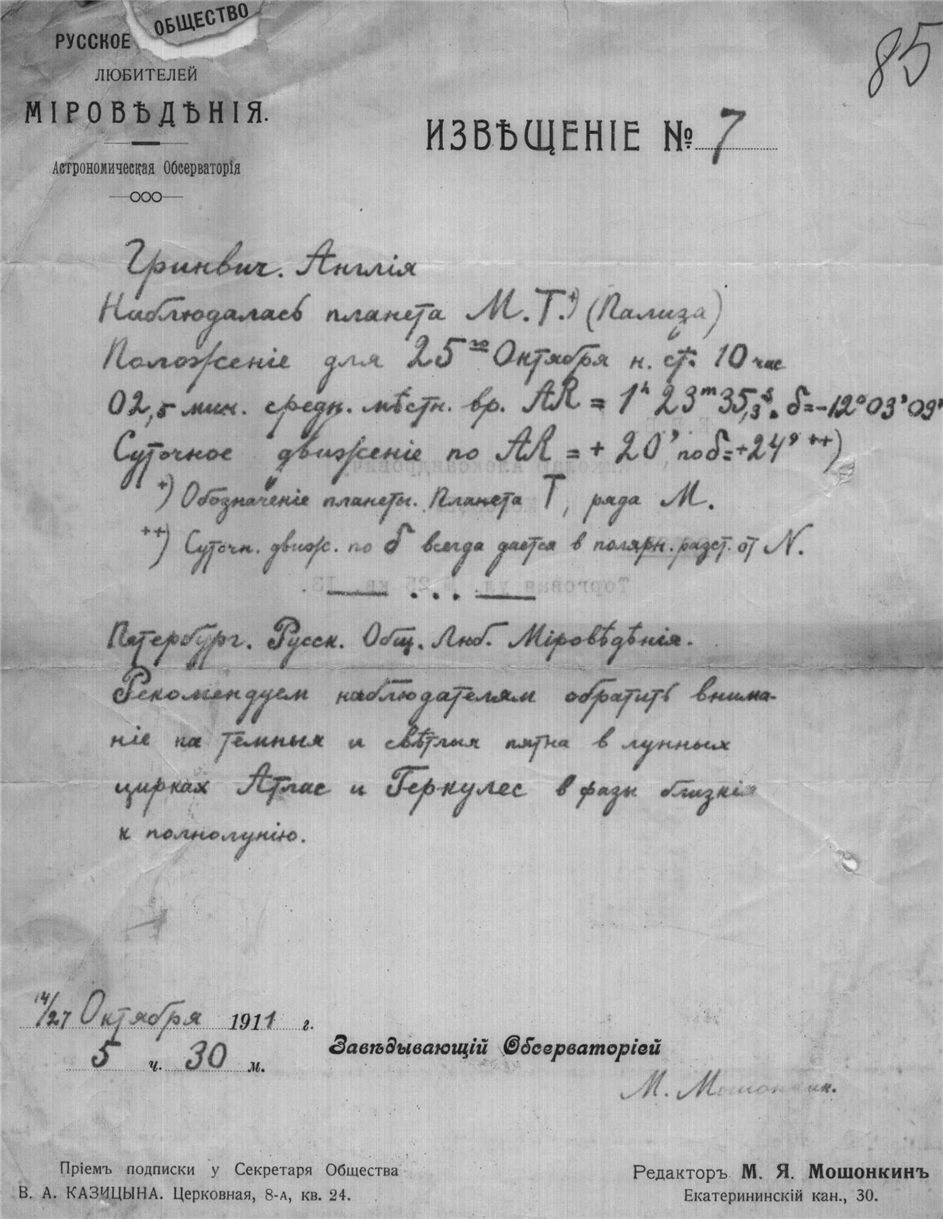 РУССКОЕ ОБЩЕСТВО
ЛЮБИТЕЛЕЙ
МІРОВѢДѢНІЯ.
Астрономическая Обсерваторія
85
ИЗВѢЩЕНІЕ № 7
Гринвич. Англія
Наблюдалась планета М.Т.+) (Пализа)
Положеніе для 25го Октября н. ст. 10 час
02,5 мин. средн. мѣстн. вр. AR = 1h 23m 35,3s. δ=-12°03'09"
Суточное движеніе по AR = + 20' по δ=+24' ++)
+) Обозначеніе планеты. Планета Т, ряда М.
++) Суточн. движ. по δ всегда дается в полярн. разст. от N.
Торговая ул. 25 кв. 13.
Петербург. Русск. Общ. Люб. Міровѣдѣнія.
Рекомендуем наблюдателям обратить внима-
ніе на темныя и свѣтлыя пятна в лунных
цирках Атлас и Геркулес в фазы близкія
к полнолунію.
14/27 Октября 1911 г.
5 ч. 30 м.
Завѣдывающій Обсерваторіей
М. Мошонкин.
Пріемъ подписки у Секретаря Общества
В. А. КАЗИЦЫНА. Церковная, 8-А, кв. 24.
Редакторъ М. Я. Мошонкинъ
Екатерининскій кан., 30.